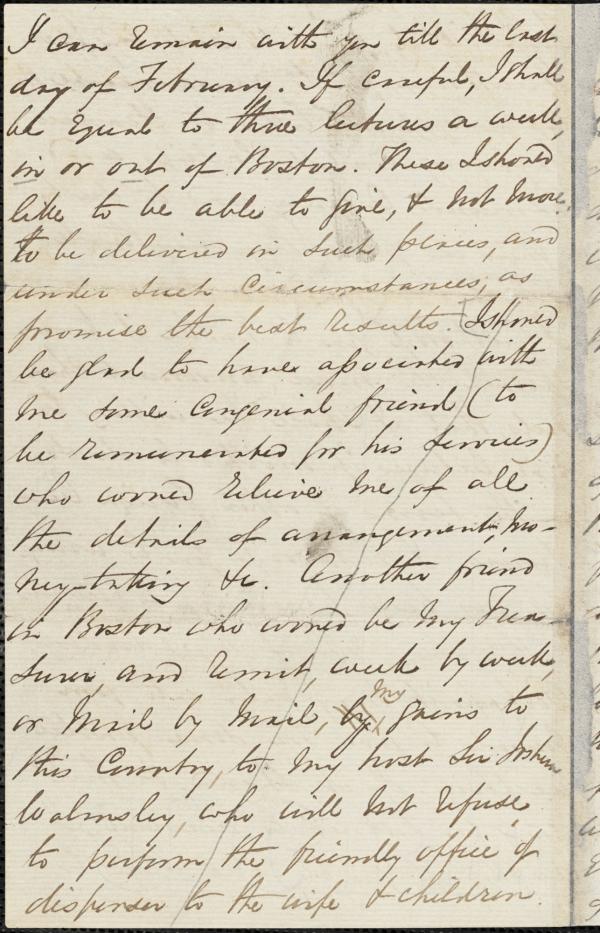 I can remain with you till the last
day of February. If careful, I shall
be equal to three lectures a week,
in or out of Boston. These I should
like to be able to give, & not more,
to be delivered in such places, and
under such circumstances, as
promise the best results. [I should
be glad to have associated with
me some congenial friend (to
be remunerated for his services)
who would relieve me of all
the details of arrangement, mo-
ney-taking &c. Another friend
in Boston who would be my Trea-
surer, and remit, week by week,
or Mail by Mail, my gains to
this Country, to my host Sir Joshua
Walmsley, who will not refuse
to perform the friendly office of
dispenser to the wife & children.